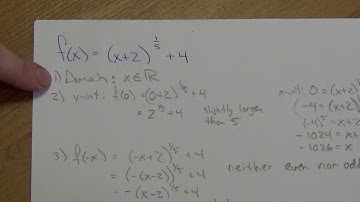 f(x) = (x+2)^{1/5} + 4
1) Domain: x∈ℝ
2) y-int: f(0) = (0+2)^{1/5} + 4
= 2^{1/5} + 4 slightly larger than 5
x-int: 0 = (x+2
(-4 = (x+2
(-4)^5 = x+2
-1024 = x+
-1026 = x
3) f(-x) = (-x+2)^{1/5} + 4 neither even nor odd
= (-(x-2))^{1/5} + 4
= -(x-2)^{1/5} + 4